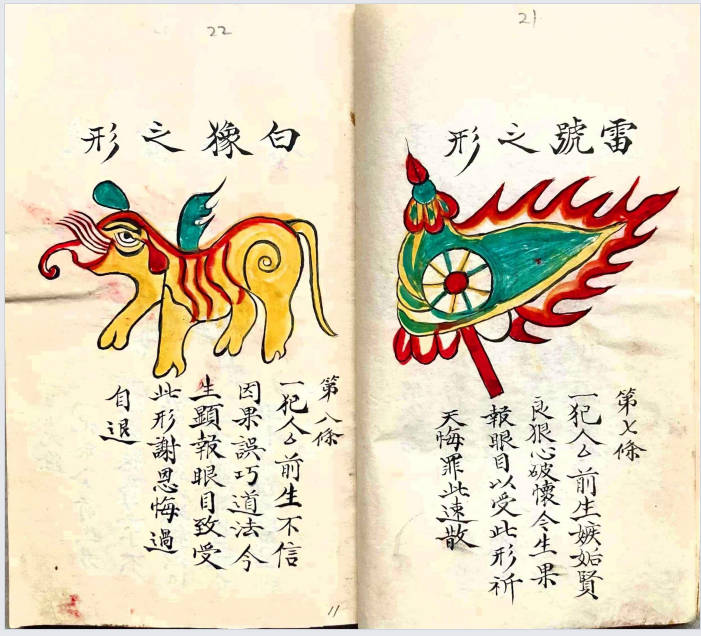 21
雷號之形
第七條
一犯人厶前生嫉妬賢
良狠心破懷今生果
報眼目以受此形祈
天悔罪此速散
22
白之形
第八條
一犯人厶前生不信
因果誤巧道法今
生顕報眼目致受
此形謝恩悔過
自退
11